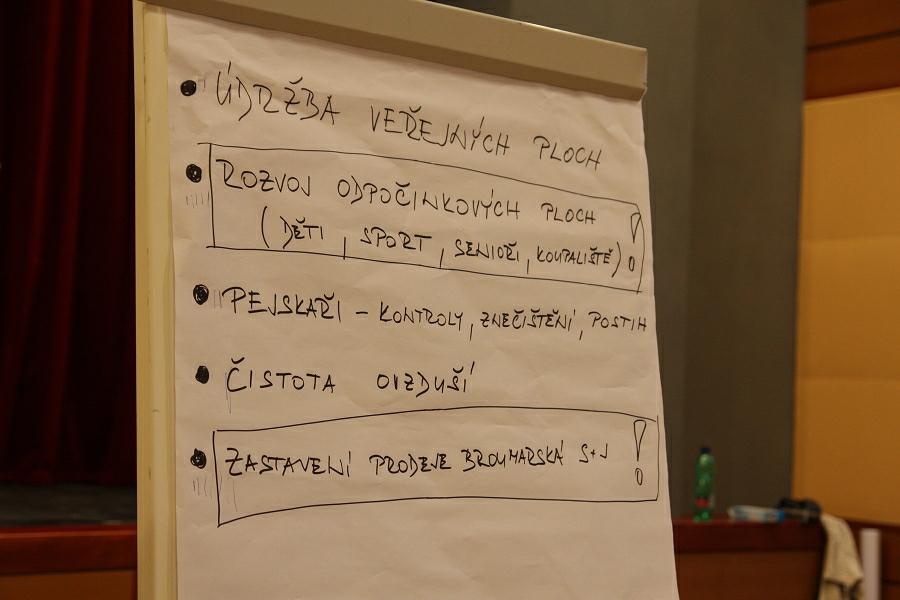 • ÚDRŽBA VEŘEJNÝCH PLOCH
• ROZVOJ ODPOČINKOVÝCH PLOCH !
(DĚTI, SPORT, SENIOŘI, KOUPALIŠTĚ)
• PEJSKAŘI – KONTROLY, ZNEČIŠTĚNÍ, POSTIH
• ČISTOTA OVZDUŠÍ
• ZASTAVENÍ PRODEJE BROUMARSKÁ S+J !